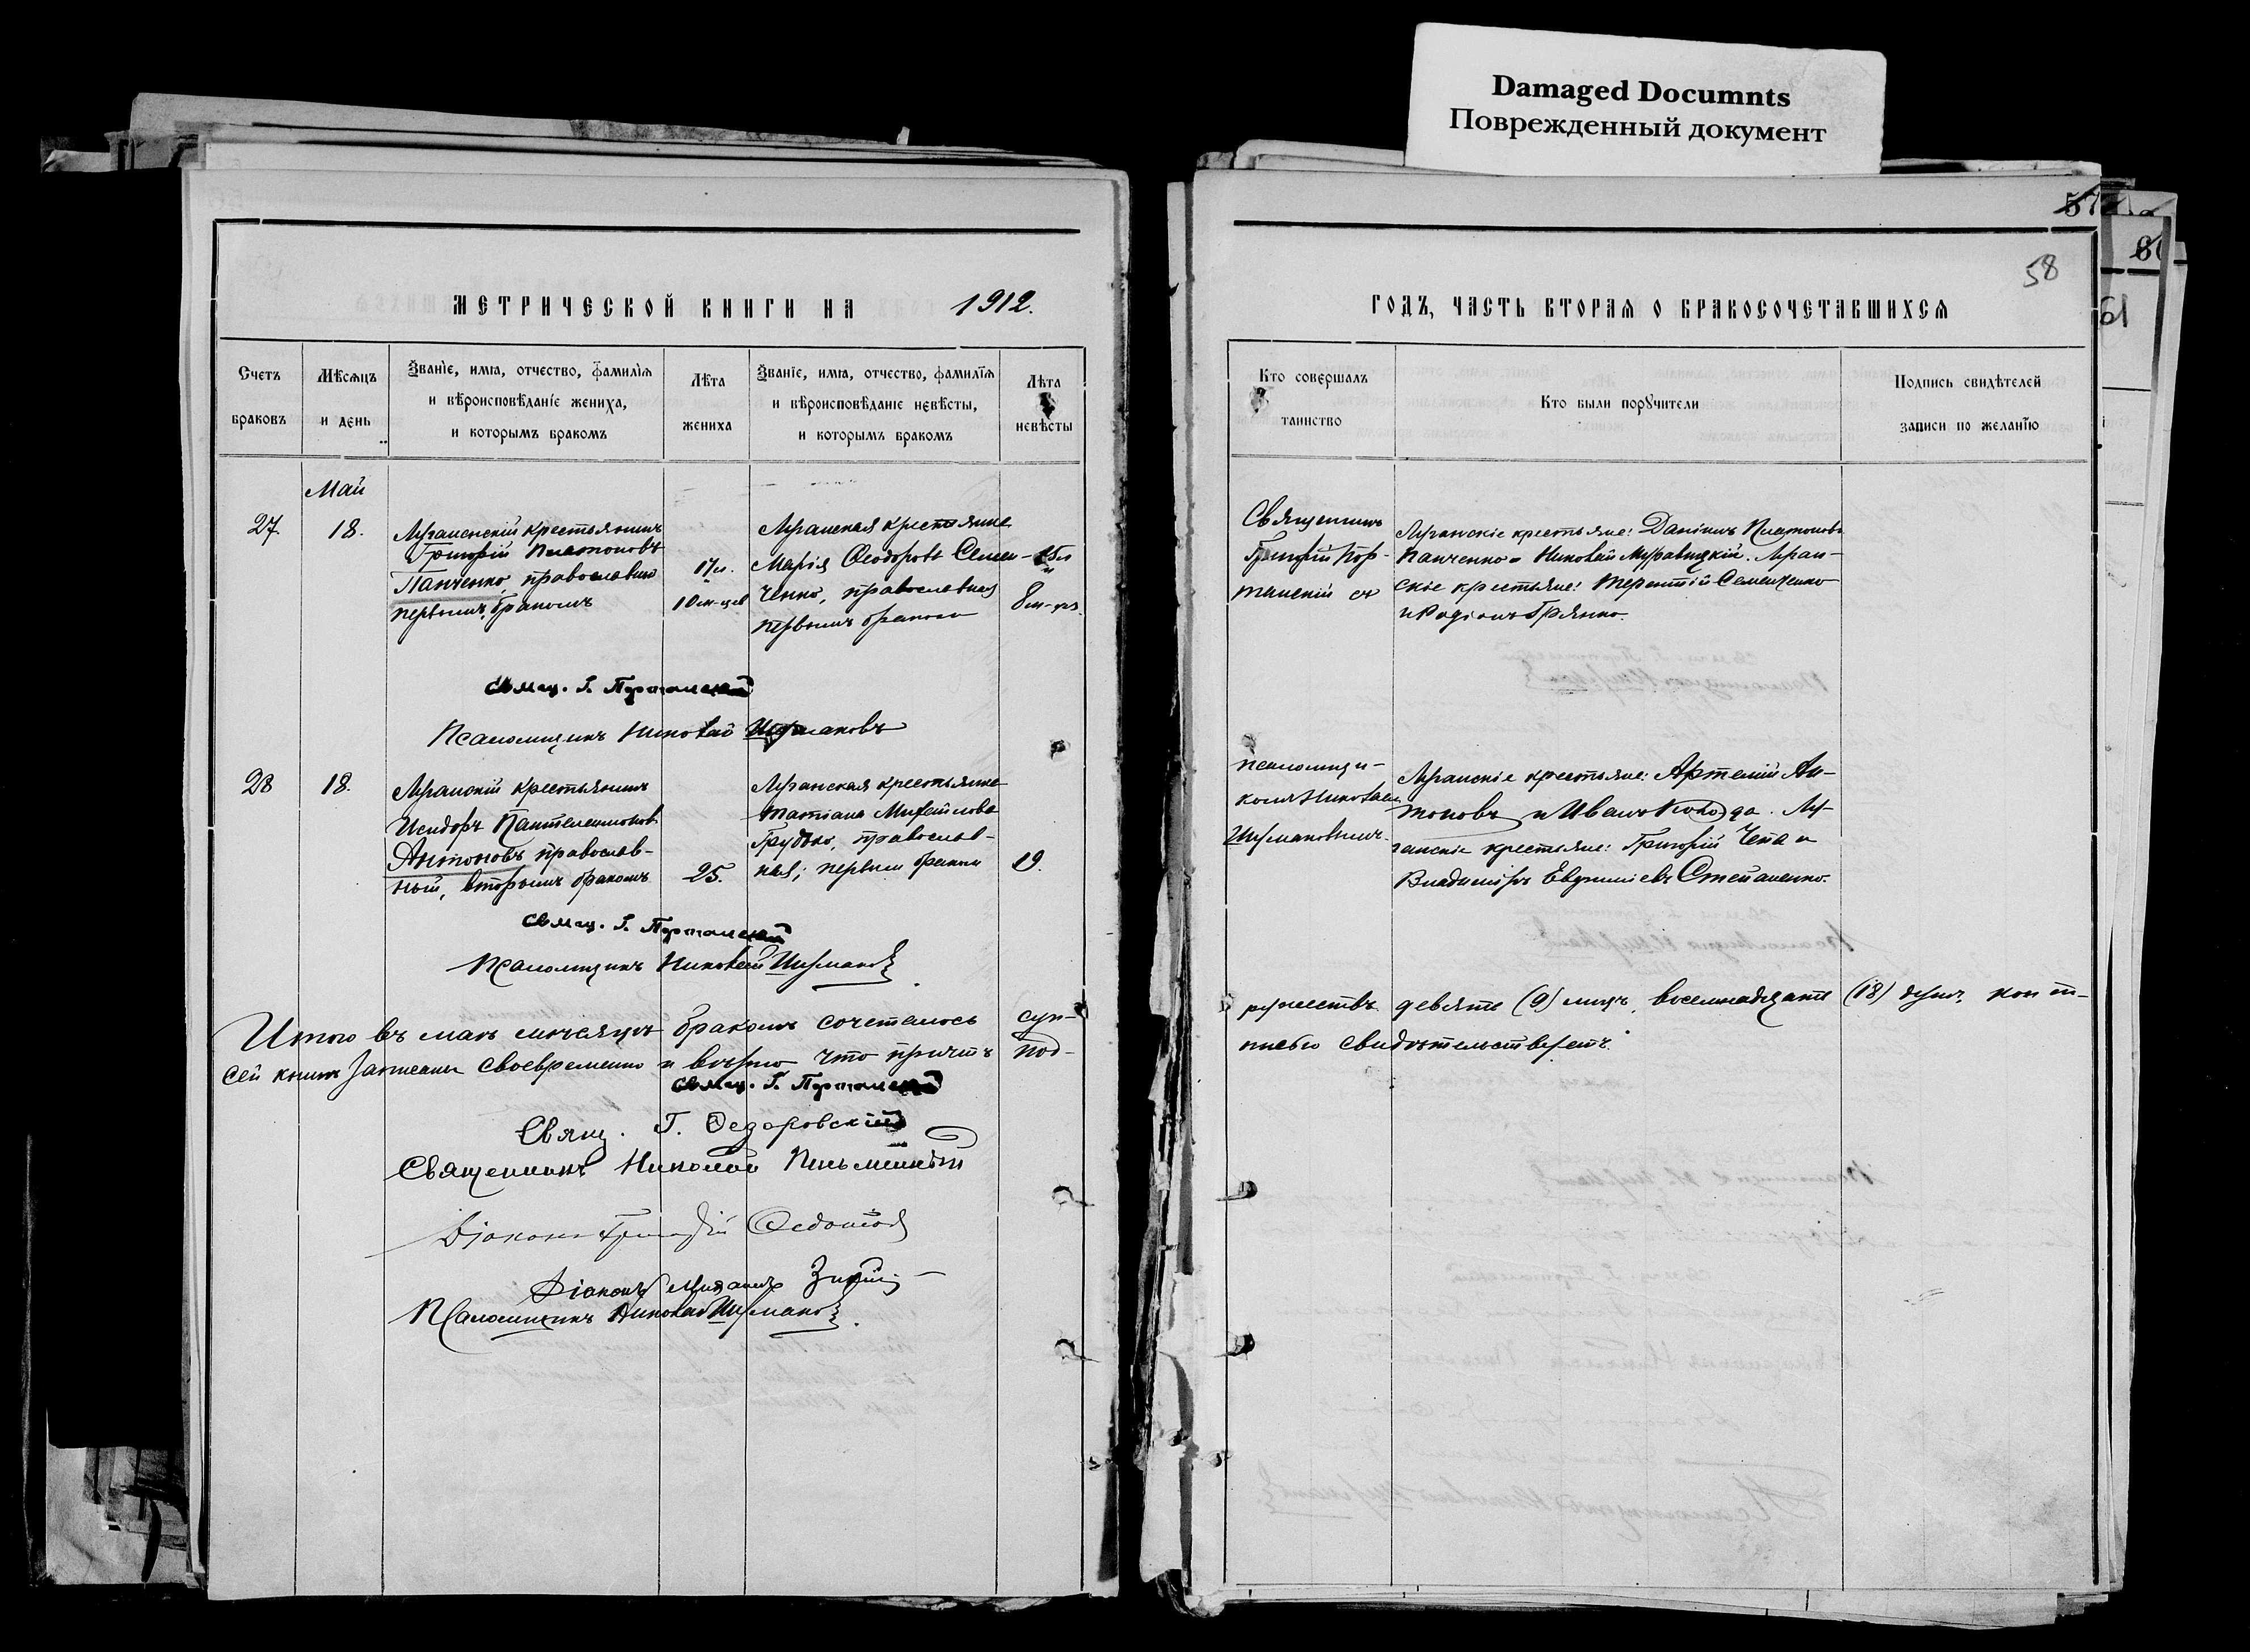 Damaged Documnts
Поврежденный документ
57
58
61
МЕТРИЧЕСКОЙ КНИГИ НА 1912.
ГОДЪ, ЧАСТЬ ВТОРАЯ О БРАКОСОЧЕТАВШИХСЯ
Счетъ браковъ
Мѣсяцъ и день
Званіе, имя, отчество, фамилія
и вѣроисповѣданіе жениха,
и которымъ бракомъ
Лѣта жениха
Званіе, имя, отчество, фамилія
и вѣроисповѣданіе невѣсты,
и которымъ бракомъ
Лѣта невѣсты
Кто совершалъ
таинство
Кто были поручители
Подпись свидѣтелей
записи по желанію
Май
27.
18.
крестьянинъ
Григорій Платоновъ
Панченко, православный
первымъ бракомъ
17 л.
10 м-цев
крестьянка
Марія Ѳеодорова Семен-
ченко, православная
первымъ бракомъ
8 м-
Священникъ
Григорій Пор-
танскій съ
крестьяне: Даніилъ Платоновъ
Панченко и Николай Муравицкій.
скіе крестьяне: Терентій Семенченко
и Родіонъ Грянко.
Свящ. Г. Портанскій
Псаломщикъ Николай
28
18.
крестьянинъ
Исидоръ Пантелеимонов.
Антоновъ православ-
ный, вторымъ бракомъ
25.
крестьянка
Татіана Михайлова
православ-
ная; первымъ бракомъ
19.
псаломщи-
комъ Николаем
крестьяне: Артемій Ан-
тоновъ и Иванъ
ганскіе крестьяне: Григорій Чепа и
Владиміръ Евѳиміевъ Степаненко.
Свящ. Г. Портанскій
Псаломщикъ Николай
Итого въ маѣ мѣсяцѣ бракомъ сочеталось суп-
ружествъ девять (9) паръ, восемнадцать (18) душъ, кои
сей книгѣ записаны своевременно и вѣрно что причтъ под-
писью свидѣтельствуетъ.
Свящ. Г. Портанскій
Свящ. Г. Ѳедоровскій
Священникъ Николай
Діаконъ Григорій Ѳедотов
Діаконъ Михаилъ
Псаломщикъ Николай